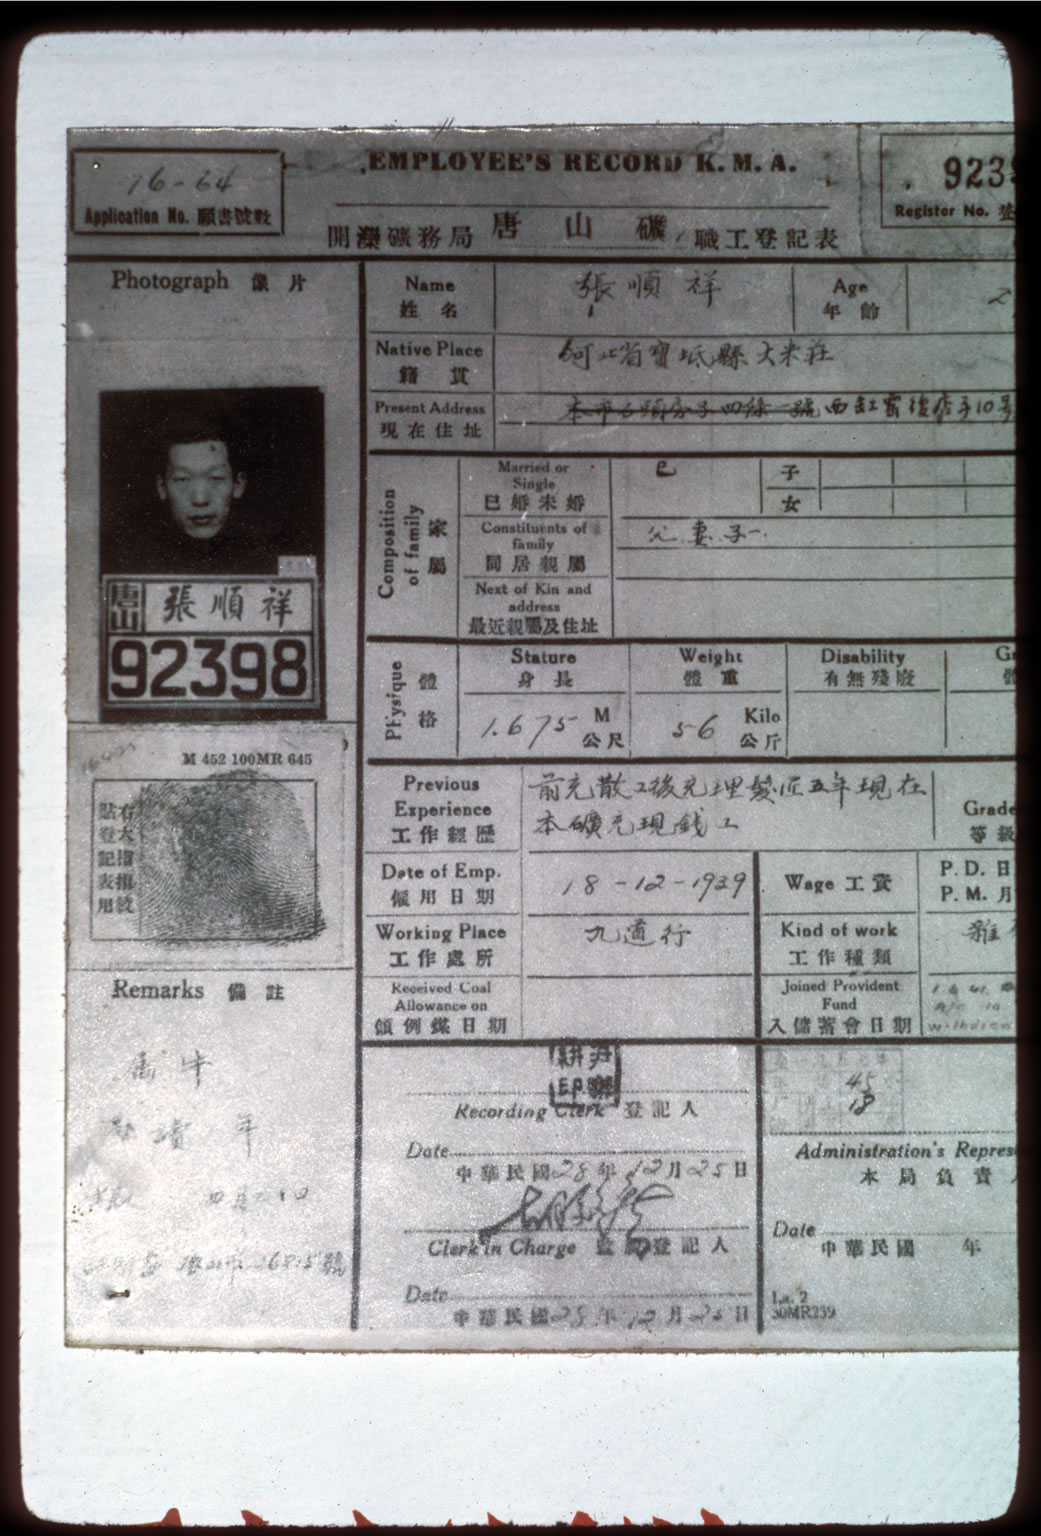 16-64
Application No. 願書號數
EMPLOYEE'S RECORD K.M.A.
開灤礦務局 唐山礦 職工登記表
923
Register No. 登
Photograph 像片
Name 張順祥 Age 2
姓名 年齡
Native Place 河北省寶坻縣大米莊
籍貫
Present Address 本市石頭房子四條一號西缸窰
現在住址
Composition of family 家屬
Married or Single 已 子
已婚未婚 女
Constituents of family 父妻子一
同居親屬
Next of Kin and address
最近親屬及住址
唐山 張順祥
92398
Physique 體格
Stature Weight Disability
身長 體重 有無殘廢
1.675 M 公尺 56 Kilo 公斤
M 452 100MR 645
右大拇指紋
貼登記表用
Previous Experience 前充散工後充理髮匠五年現在
工作經歷 本礦充現錢工
Grade
等級
Date of Emp. 18-12-1939 Wage 工資 P.D. 日
僱用日期 P.M. 月
Working Place 九道行 Kind of work 雜
工作處所 工作種類
Received Coal Allowance on Joined Provident Fund
領例煤日期 入儲蓄會日期
Remarks 備註
Recording Clerk 登記人
Date
中華民國28年12月25日
Clerk in Charge 監督登記人
Date
中華民國28年12月25日
45
18
Administration's Repres
本局負責人
Date
中華民國 年
La. 2
30MR239